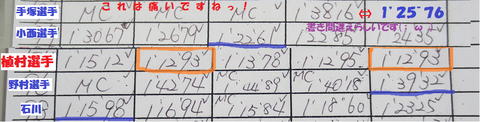 手塚選手 MC MC MC 1'38"16 ⇔ 1'25"76
これは痛いですねっ!
小西選手 1'30"67 1'26"79 1'22"61
書き間違えらしいです
植村選手 1'15"12 1'12"93 1'13"78 1'12"95 1'12"93
野村選手 MC 1'42"74 MC 1'44"89 MC 1'40"18 1'39"32
石川 1'15"98 1'16"94 1'15"84 1'18"60 1'23"25